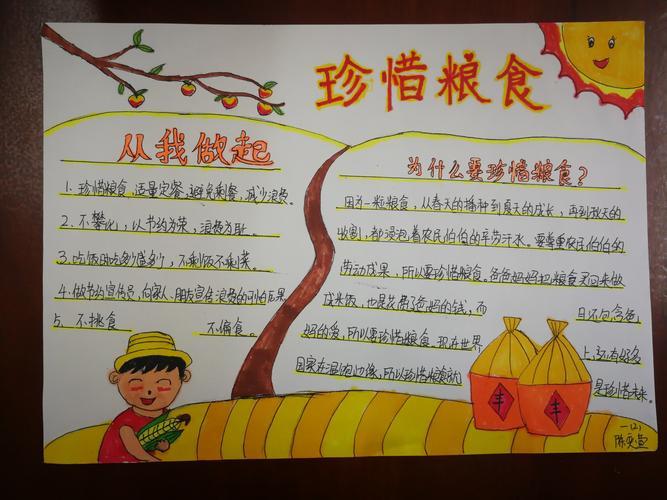 珍惜粮食
从我做起
1. 珍惜粮食,适量定餐,避免剩餐,减少浪费。
2. 不攀比,以节约为荣,浪费为耻。
3. 吃饭时吃多少盛多少,不剩饭不剩菜。
4. 做节约宣传员,向家人、朋友宣传浪费的可怕后果
5. 不挑食 不偏食。
为什么要珍惜粮食?
因为一粒粮食,从春天的播种到夏天的成长,再到秋天的
收割,都浸泡着农民伯伯的辛劳汗水。要尊重农民伯伯的
劳动成果,所以要珍惜粮食。爸爸妈妈把粮食买回来做
成米饭,也是花费了爸妈的钱,而 且还包含爸
妈的爱,所以要珍惜粮食。现在世界 上,还有好多
国家在 ,所以珍惜粮食就 是珍惜未来。
丰
丰
一(2)
陈